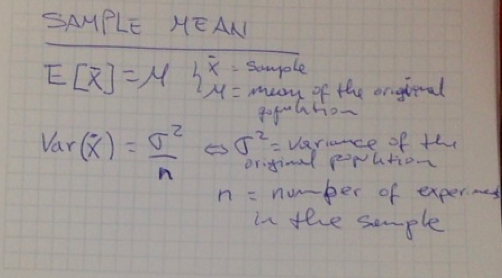 SAMPLE MEAN
E[x̄] = μ { x̄ = Sample
μ = mean of the original
population
Var(x̄) = σ²/n ⇔ σ² = variance of the
original population
n = number of experimen
in the sample